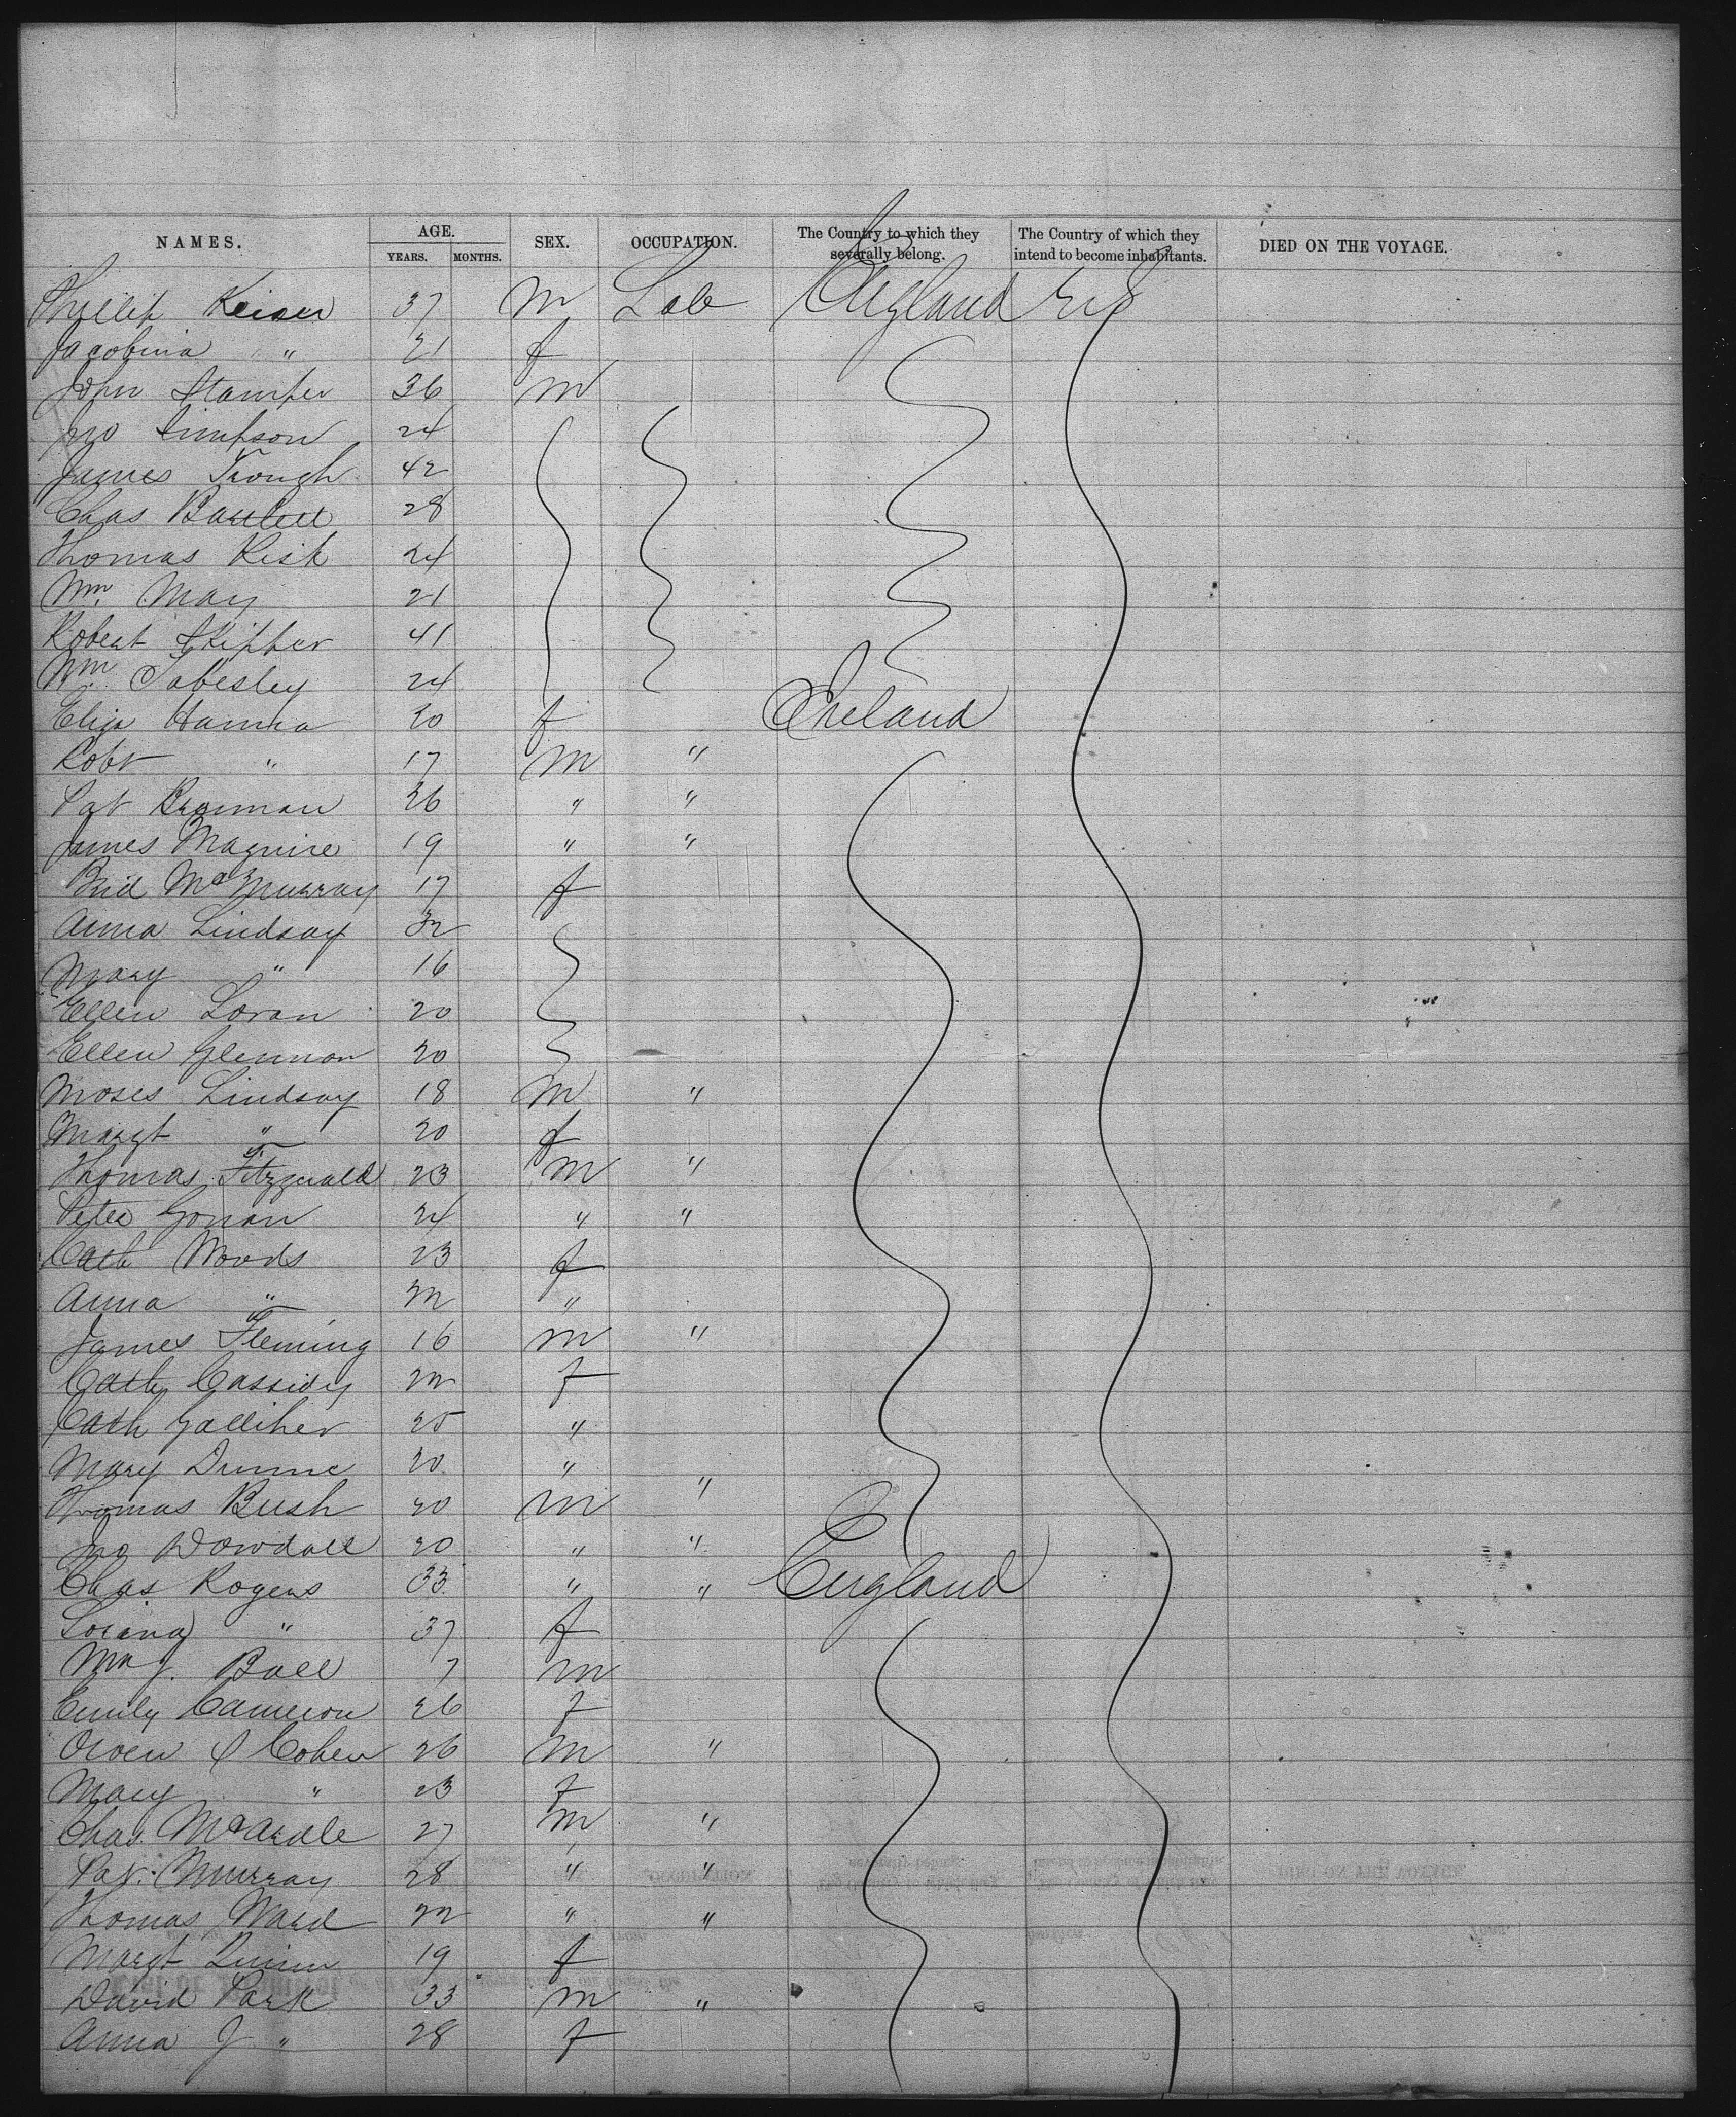 NAMES. AGE. SEX. OCCUPATION. The Country to which they severally belong. The Country of which they intend to become inhabitants. DIED ON THE VOYAGE.
YEARS. MONTHS.
Phillip Keiser 37 m Lab England U S
Jacobina " 21 f
John Stamper 36 m
Jno Simpson 24
James Trough 42
Chas Bartlett 28
Thomas Risk 24
Wm. May 21
Robert Skipper 41
Wm. Tabesley 24
Eliza Hanna 20 f Ireland
Robt " 17 m "
Pat Brennan 26 " "
James Maguire 19 " "
Brid McMurray 17 f
Anna Lindsay 32
Mary " 16
Ellen Loran 20
Ellen Glennon 20
Moses Lindsay 18 m "
Margt " 20 f
Thomas Fitzgerald 23 m "
Peter Gorman 24 " "
Cath Woods 23 f
Anna " 22 "
James Fleming 16 m "
Cath Cassidy 22 f
Cath Galliher 25 "
Mary Dunne 20 "
Thomas Bush 20 m "
Jno Dowdall 20 " "
Chas Rogers 33 " " England
" 37 f
Wm J. Ball 7 m
Emily Cameron 26 f
Owen Cohen 26 m "
Mary " 23 f
Chas. McArdle 27 m "
Pat. Murray 28 " "
Thomas Ward 22 " "
Margt Quinn 19 f
David Park 33 m "
Anna J " 28 f